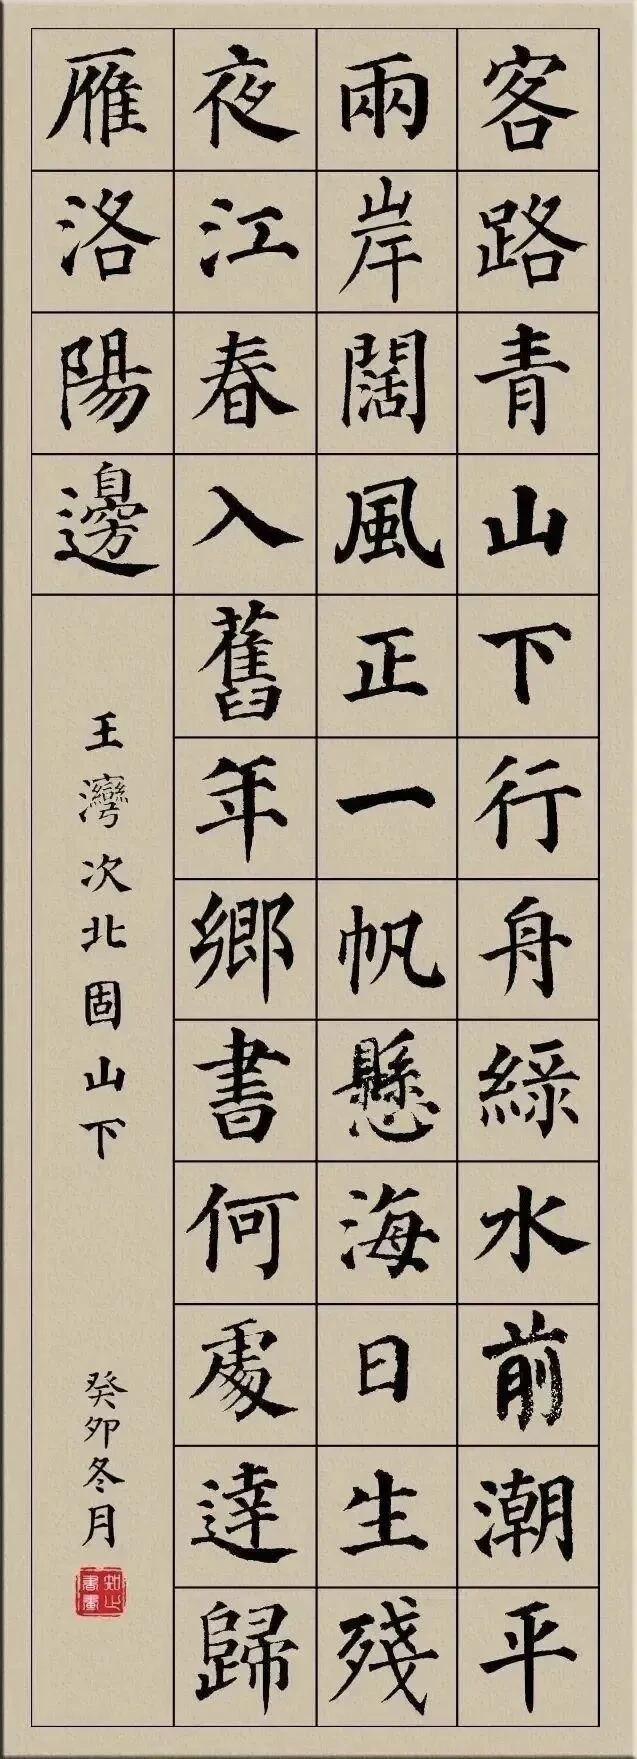 客路青山下行舟綠水前潮平
兩岸闊風正一帆懸海日生殘
夜江春入舊年鄉書何處達歸
雁洛陽邊
王灣次北固山下
癸卯冬月